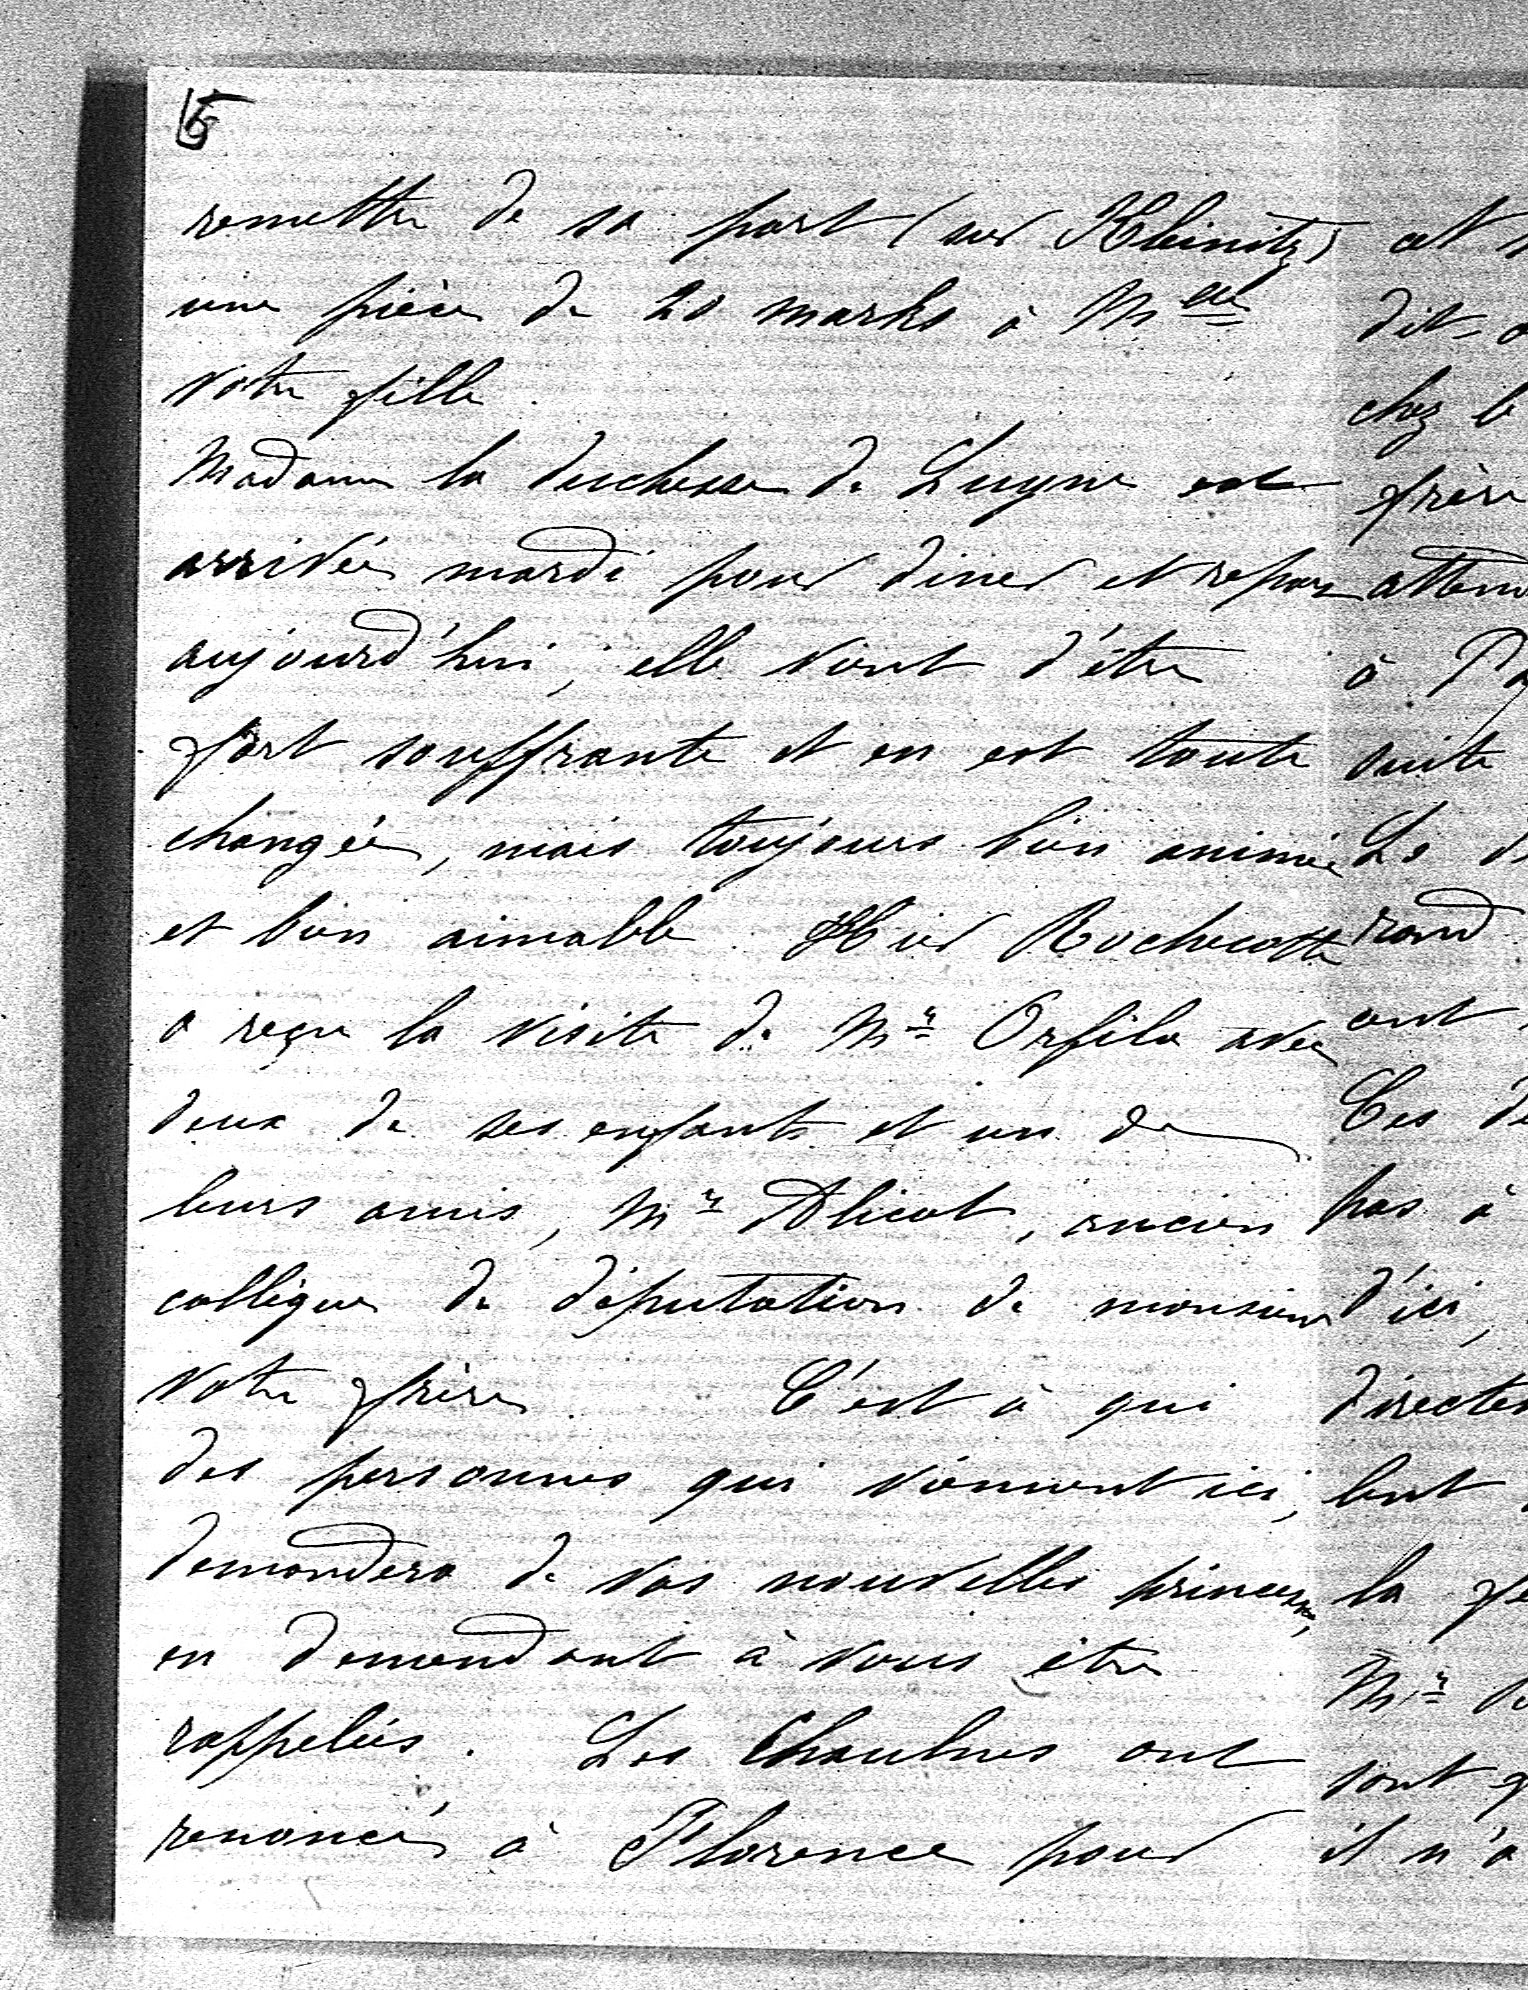 5
remettre de sa part (sur Kleinitz)
une pièce de 20 marks à Melle
votre fille.
Madame la duchesse de Luyne est
arrivée mardi pour diner et repars
aujourd'hui, elle vient d'être
fort souffrante et en est toute
changée, mais toujours bien animée
et bien aimable. Hier Rochecotte
a reçu la visite de Mr Orfila avec
deux de ses enfants et un de
leurs amis, Mr Alicot, ancien
collègue de députation de monsieur
votre frère. C'est à qui
des personnes qui viennent ici,
demandera de vos nouvelles princesse,
en demandant à vous être
rappelées. Les Chaulnes ont
renoncés à Florence pour
cet
dit
chez le
frère
attend
à
suite
Le
rand
ont
Ces de
pas à
d'ici,
directe
lent
la
Mr
sont
il n'a